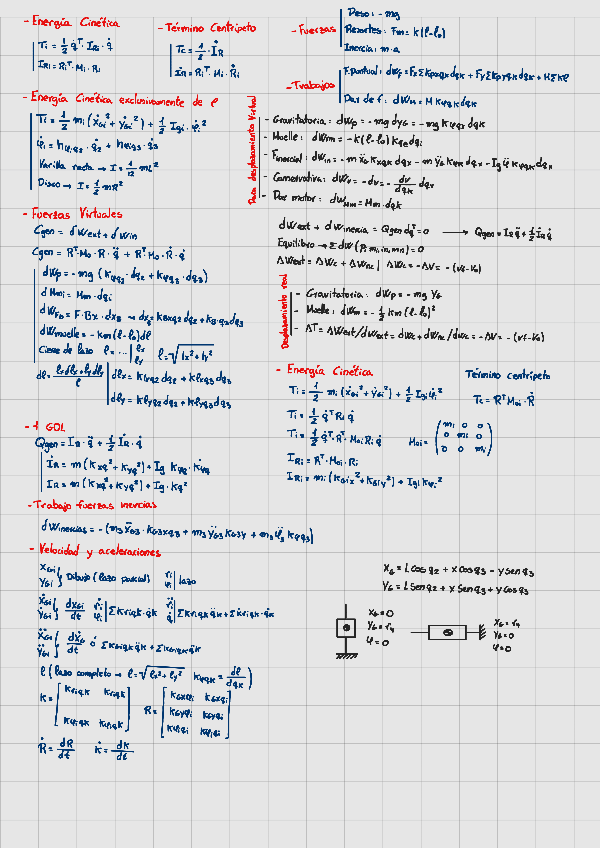 - Energía Cinética
Ti = 1/2 q̇ᵀ · I_Ri · q̇
I_Ri = Riᵀ · Mi · Ri
- Término Centrípeto
Tc = 1/2 · İ_R
İ_R = Riᵀ · Mi · Ṙi
- Fuerzas
Peso: - mg
Resortes: Fm = k(l-l₀)
Inercia: m·a
- Trabajos
Par de f: dWM = M Kφqk dqk
- Energía Cinética exclusivamente de l
Ti = 1/2 mi (ẋGi² + ẏGi²) + 1/2 IGi · φ̇i²
Varilla recta → I = 1/12 mL²
Disco → I = 1/2 mR²
Para desplazamiento Virtual
- Gravitatoria: dWp = - mg dyG = - mg Kyqk dqk
- Muelle: dWm = - k(l-l₀) Kqk dqk
- Conservativa: dWv = - dv = - dv/dqk dqk
- Par motor: dWMm = Mm · dqk
- Fuerzas Virtuales
Qgen = dWext + dWin
Qgen = Rᵀ · Mo · R · q̈ + Rᵀ · Mo · Ṙ · q̇
dWp = - mg (Kyq₂ · dq₂ + Kyq₃ · dq₃)
dMmi = Mm · dqi
dWmuelle = - Km (l-l₀) dl
Cierre de lazo l = ... | lx ly l = √lx² + ly²
dl = lx dlx + ly dly / l
dlx = Klxq₂ dq₂ + Klxq₃ dq₃
dly = Klyq₂ dq₂ + Klyq₃ dq₃
dWext + dWinercia = Qgen dqᵀ = 0 → Qgen = I_R q̈ + 1/2 İ_R q̇
Equilibrio → Σ dW (P, mi, in, mn) = 0
ΔWext = ΔWc + ΔWnc | ΔWc = - ΔV = - (Vf-V₀)
Desplazamiento real
- Gravitatoria: dWp = - mg YG
- Muelle: dWm = - 1/2 km (l-l₀)²
- ΔT = ΔWext / dWext = dWc + dWnc / dWc = - ΔV = - (Vf-V₀)
- Energía Cinética
Ti = 1/2 mi (ẋGi² + ẏGi²) + 1/2 IGi φ̇i²
Ti = 1/2 q̇ᵀ Ri q̇
Ti = 1/2 q̇ᵀ · Rᵀ · MGi Ri q̇
MGi = (mi 0 0
0 mi 0
0 0 mi)
I_Ri = Rᵀ · MGi · Ri
I_Ri = mi (KGix² + KGiy²) + IGi Kφi²
Término centrípeto
Tc = Rᵀ MGi · Ṙ
- 1 GDL
Qgen = I_R · q̈ + 1/2 İ_R · q̇
İ_R = m (Kxq² + Kyq²) + Ig Kφq · K̇φq
I_R = m (Kxq² + Kyq²) + Ig · Kq²
- Trabajo fuerzas inercias
- Velocidad y aceleraciones
XGi
YGi } Dibujo (lazo parcial) ri φi | lazo
ẊGi
ẎGi } dXGi/dt ṙi φ̇i | Σ Kriqk · q̇k
ẌGi
ŸGi } dẊGi/dt ó Σ KxGiqk q̈k + Σ K̇xGiqk q̇k
l (lazo completo → l = √lx² + ly² Klqk = dl/dqk)
K = [Kriqk Kriqk
Kφiqk Kφiqk]
R = [KGxqi KGxqi
KGyqi KGyqi
Kφqi Kφqi]
Ṙ = dR/dt K̇ = dK/dt
XG = L cos q₂ + x cos q₃ - y sen q₃
YG = L sen q₂ + x sen q₃ + y cos q₃
XG = 0
YG = r₄
φ = 0
XG = r₄
YG = 0
φ = 0